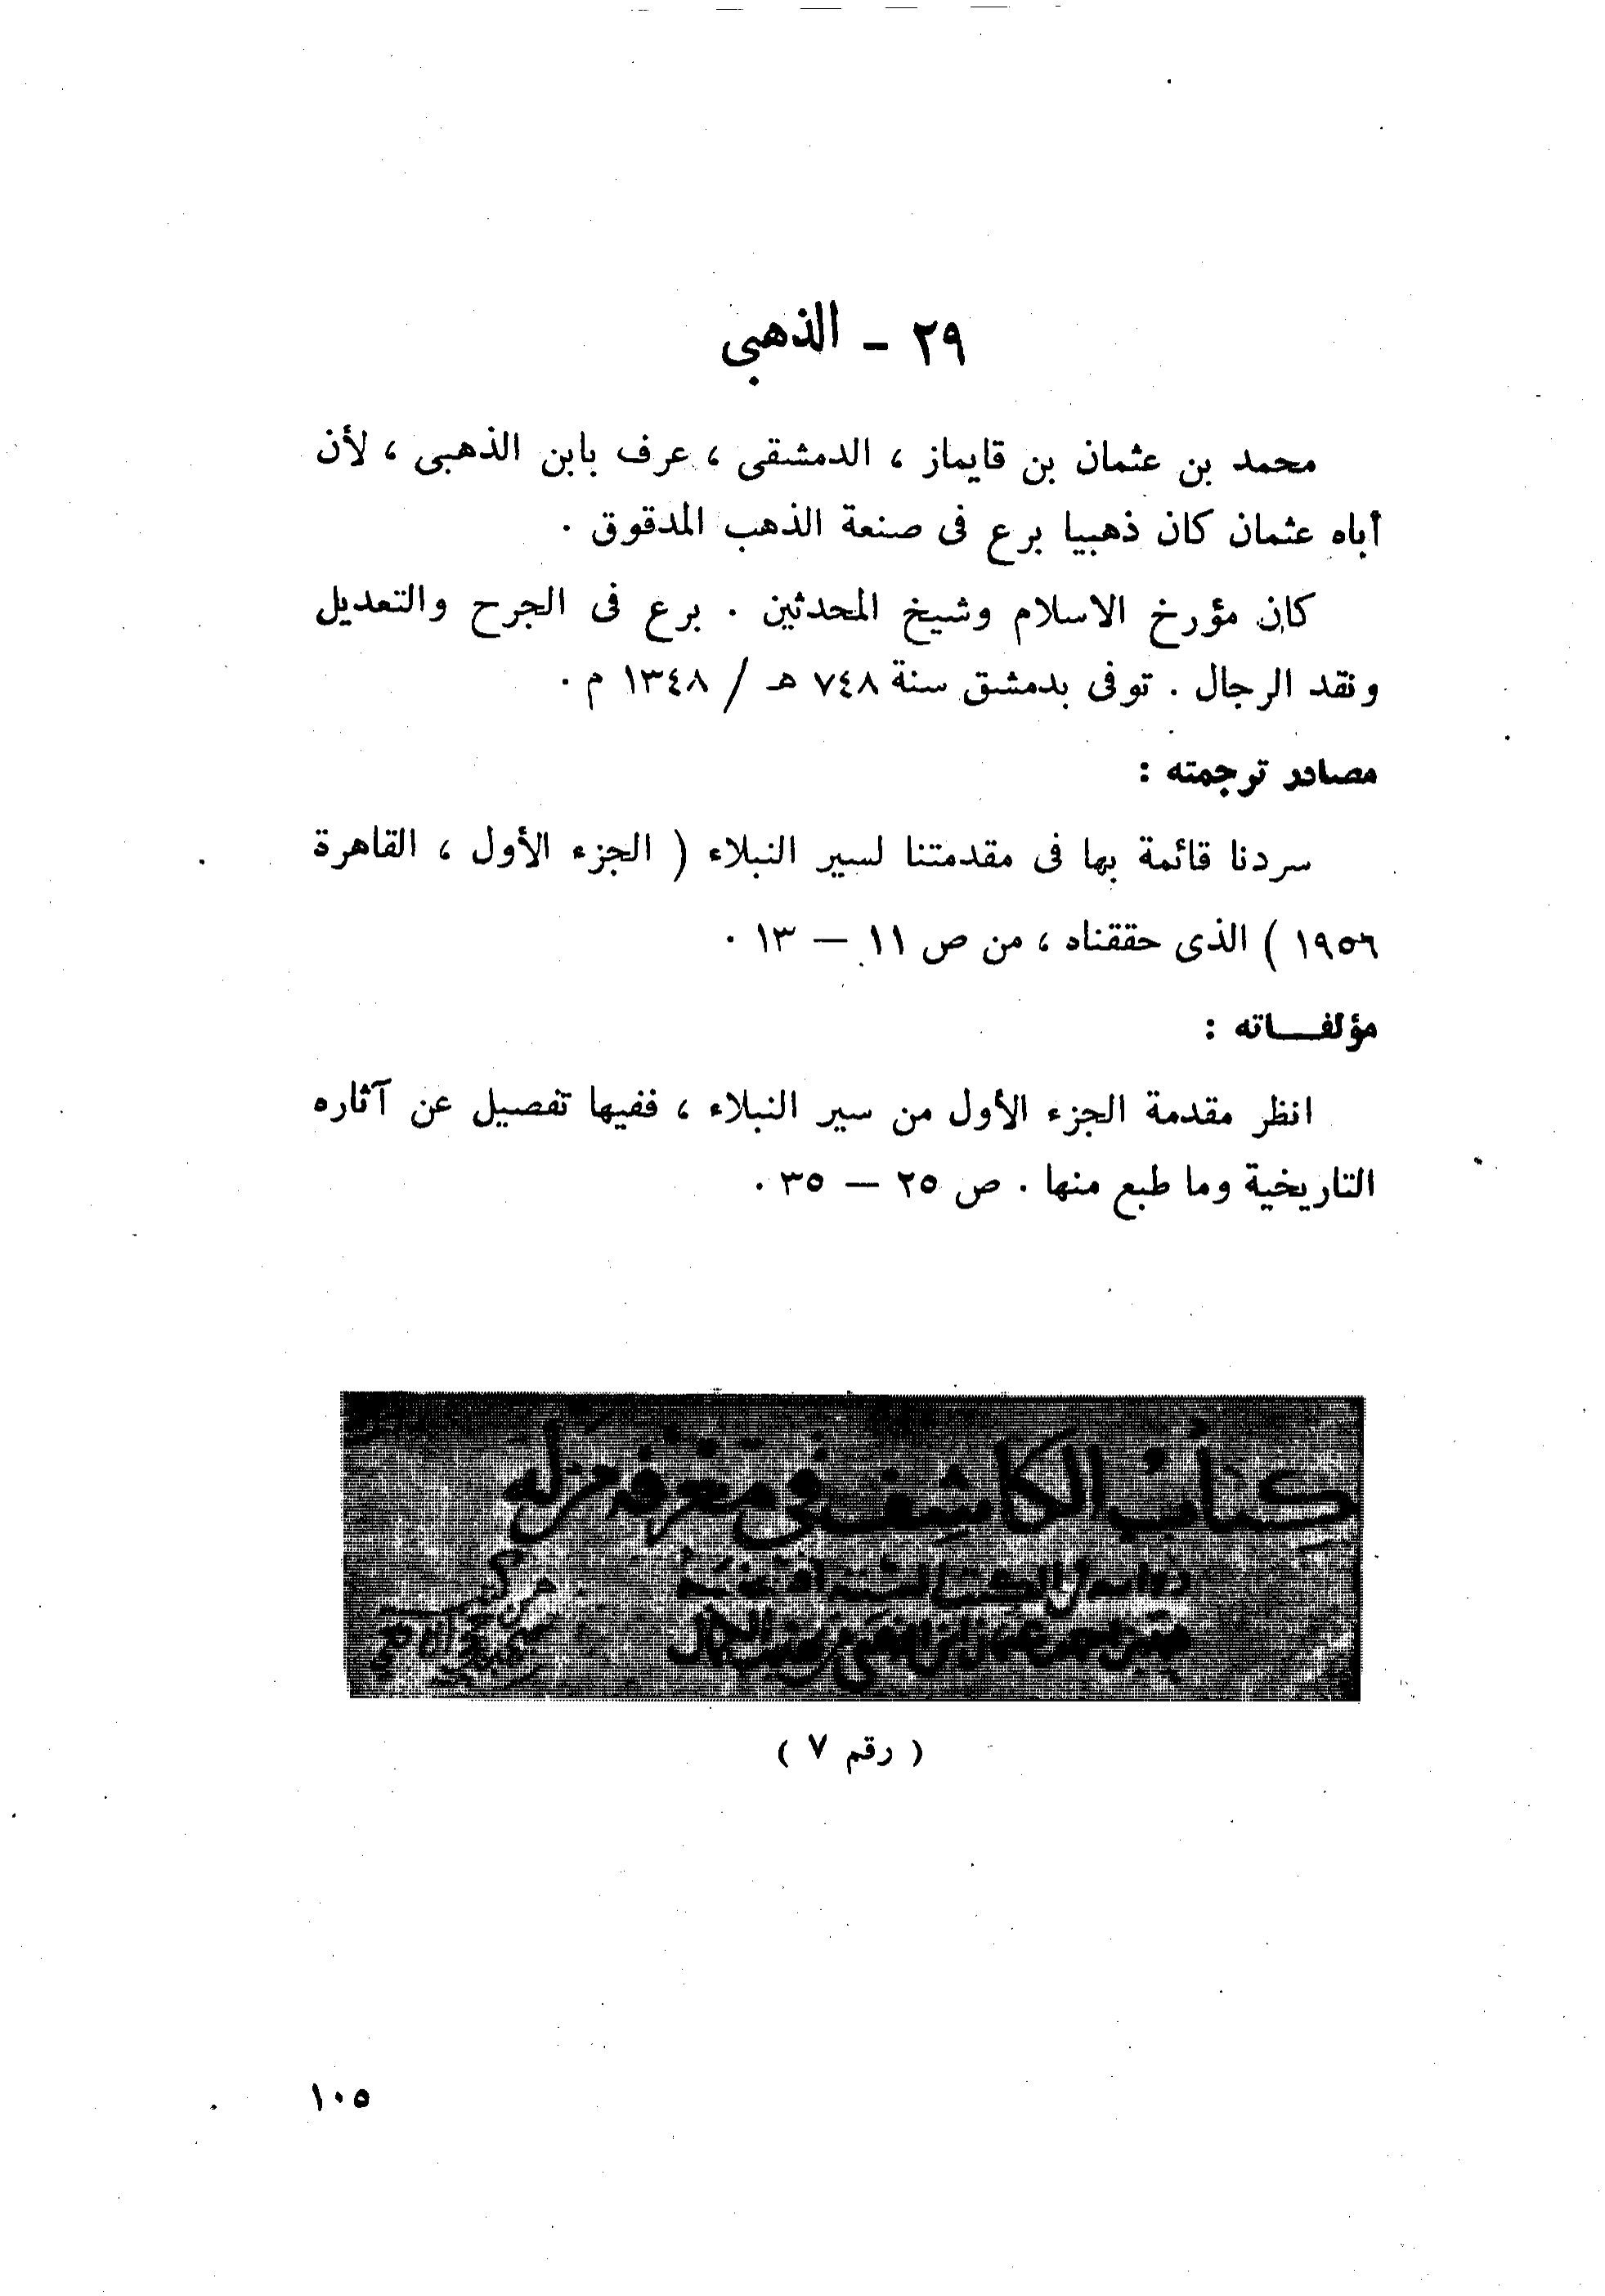 ٢٩ - الذهبى
محمد بن عثمان بن قايماز ، الدمشقى ، عرف بابن الذهبى ، لأن
أباه عثمان كان ذهبيا برع فى صنعة الذهب المدقوق .
كان مؤرخ الاسلام وشيخ المحدثين . برع فى الجرح والتعديل
ونقد الرجال . توفى بدمشق سنة ٧٤٨ هـ / ١٣٤٨ م .
مصادر ترجمته :
سردنا قائمة بها فى مقدمتنا لسير النبلاء ( الجزء الأول ، القاهرة
١٩٥٦ ) الذى حققناه ، من ص ١١ — ١٣ .
مؤلفـــاته :
انظر مقدمة الجزء الأول من سير النبلاء ، ففيها تفصيل عن آثاره
التاريخية وما طبع منها . ص ٢٥ — ٣٥ .
كتاب الكاشف في معرفة من له
رواية في الكتب الستة
( رقم ٧ )
١٠٥